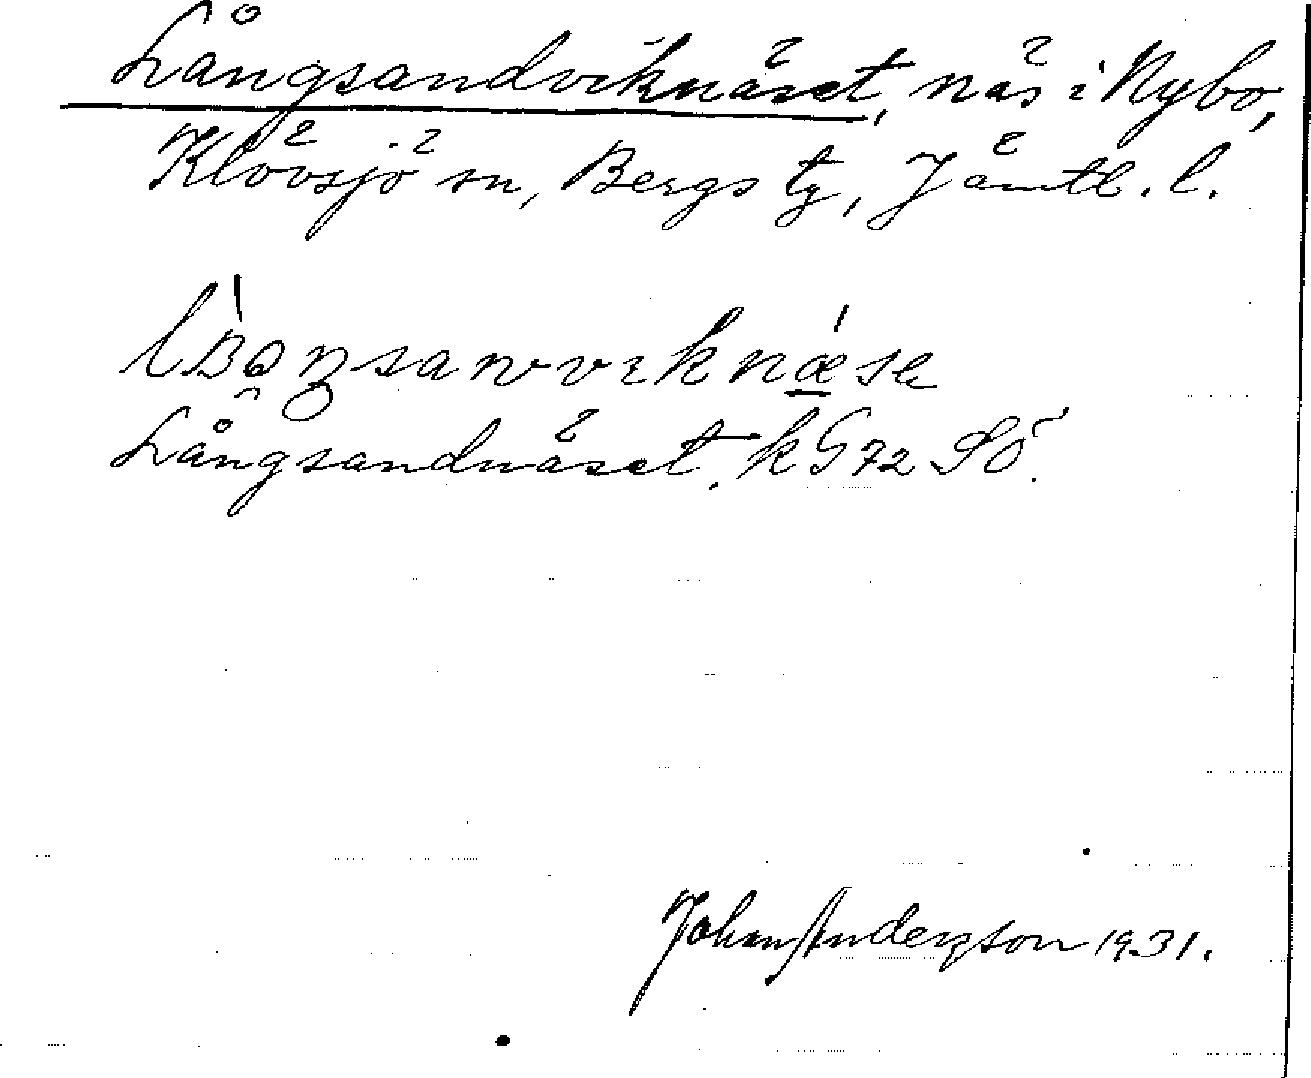 Långsandviknäset, näs i Nybo,
Klövsjö sn, Bergs tg, Jämtl. l.
Långsandnäset. k G72 SÖ.
Johan Anderzson 1931.